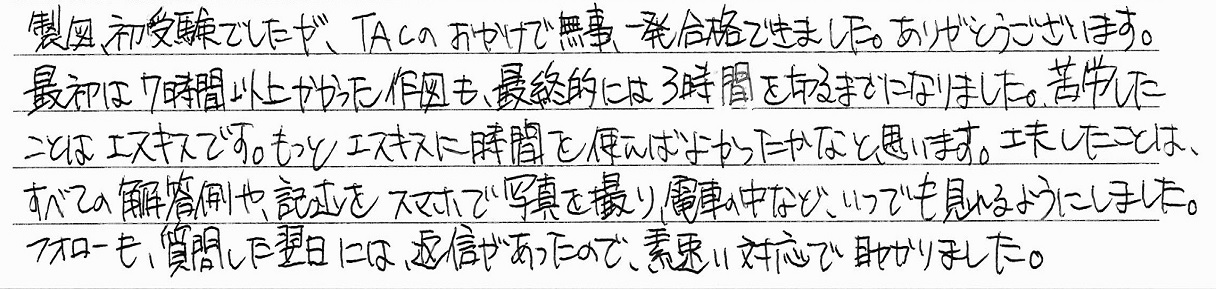 製図、初受験でしたが、TACのおかげで無事、一発合格できました。ありがとうございます。
最初は7時間以上かかった作図も、最終的には3時間を切るまでになりました。苦労した
ことはエスキスです。もっとエスキスに時間を使えばよかったかなと思います。工夫したことは、
すべての解答例や、記述をスマホで写真を撮り、電車の中など、いつでも見れるようにしました。
フォローも、質問した翌日には、返信があったので、素速い対応で助かりました。